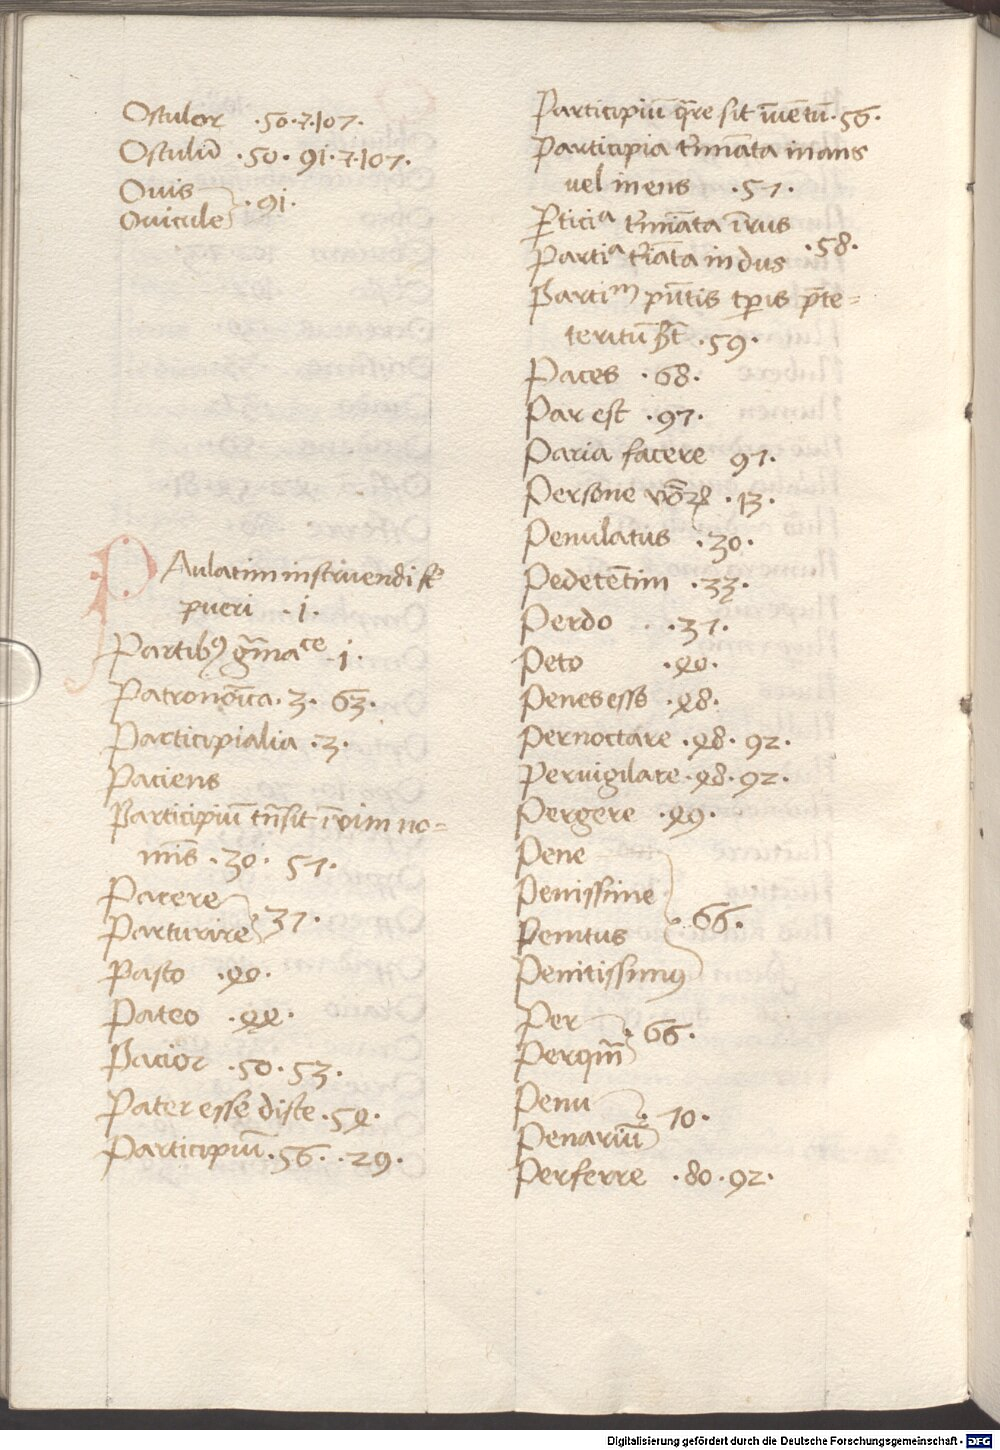 Osculor ·50·7·107·
Osculū ·50· 91·7·107·
Ouis
Ouicule ·91·
PAulatim instruendi st̄
pueri ·1·
Partibꝰ g̃maᶜᵉ ·1·
Patronoīca· 3· 63·
Participialia ·3·
Paciens
Participiū tn̄sit ī vim no=
mīs ·30· 51·
Parere
Parturire 31·
Pasco ·40·
Pateo ·44·
Pacior ·50·53·
Pater esse disce ·54·
Participiū ·56· ·29·
Participiū q̄re sit īuētū ·56·
Participia t̄mīata in ans
vel in ens ·57·
Ꝑticiᵃ t̄mīata ī rus
Partiᵃ t̄īata in dus ·58·
Partiᵐ pn̄tis tꝑis p̄te=
teritū ·59·
Paces ·68·
Par est ·97·
Paria facere 97·
Persone v̄boꝝ ·13·
Penulatus ·30·
Pedetētim ·33·
Perdo ·31·
Peto ·40·
Penes esse ·48·
Pernoctare ·48· 92·
Pervigilare ·48·92·
Pergere ·49·
Pene
Penissime
Penitus ·66·
Penitissimꝰ
Per
Perqm̄ ·66·
Penu
Penariū ·70·
Perferre ·80·92·
Digitalisierung gefördert durch die Deutsche Forschungsgemeinschaft · DFG